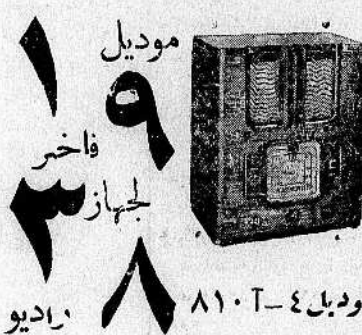 موديل
١٩٣٨
فاخر
لجهاز
راديو
وديل ٤ – آ ٨١٠